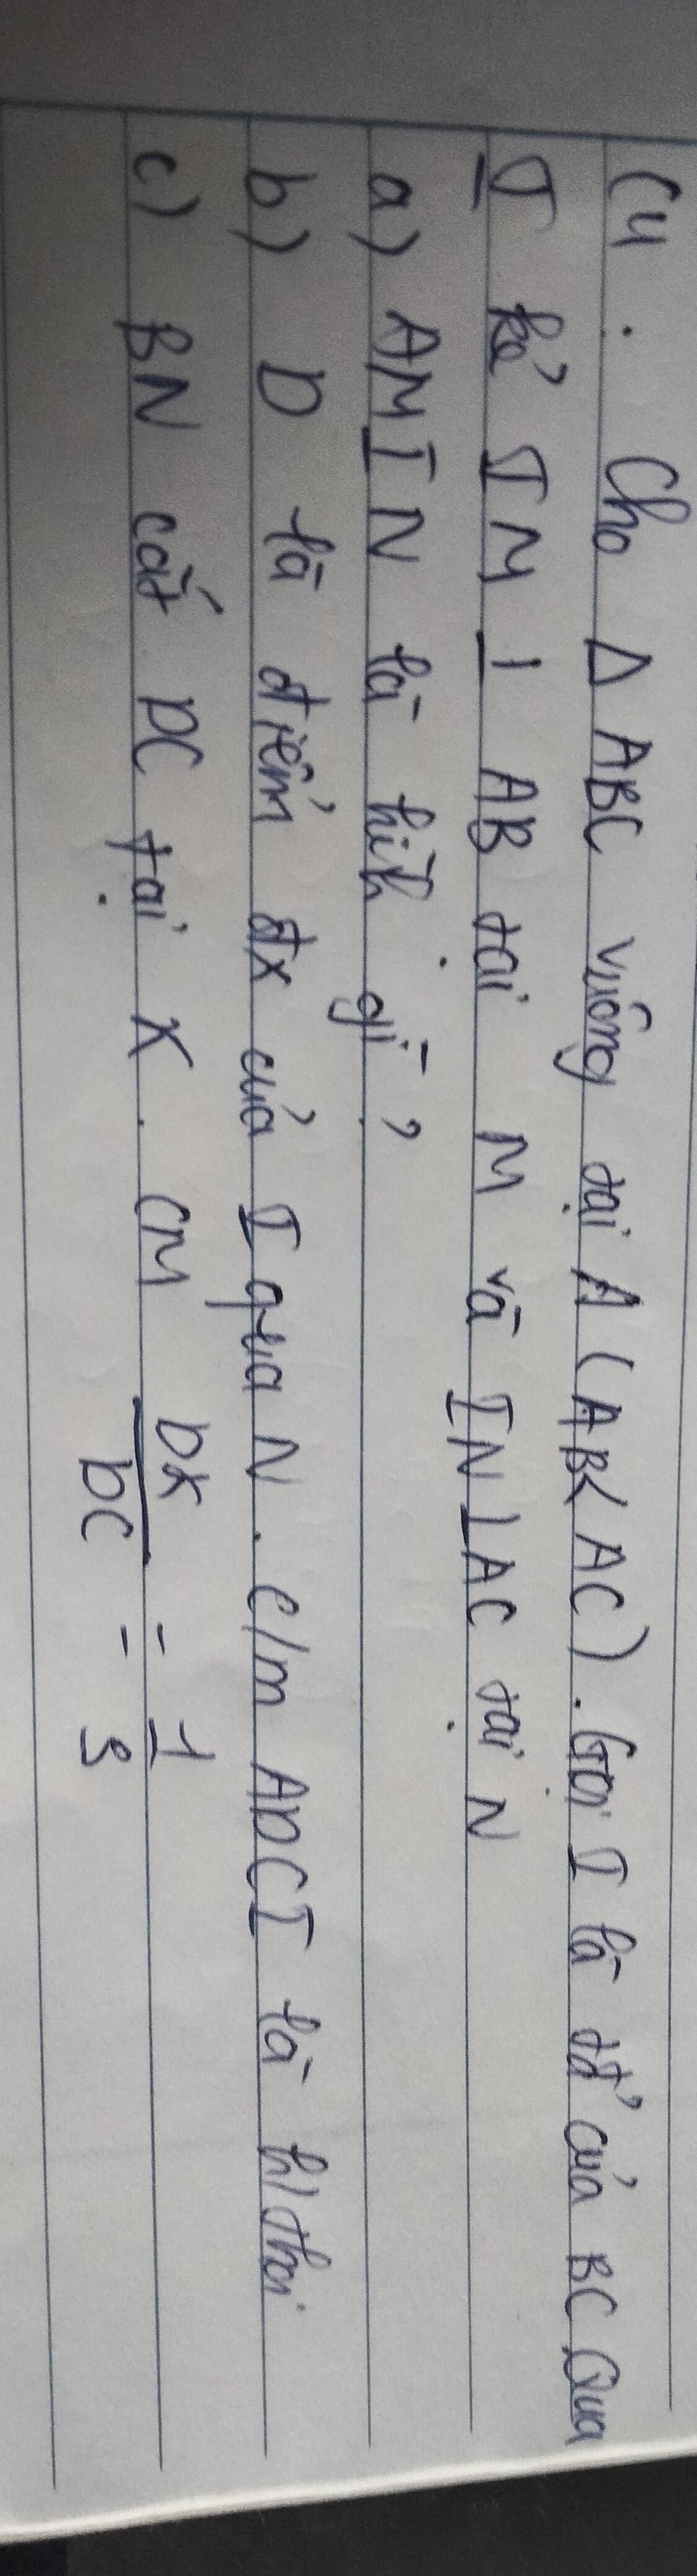 C4. Cho Δ ABC vuông tại A (AB<AC). Gọi I là tđ' của BC Qua
I kẻ IM ⊥ AB tại M và IN⊥AC tại N
a) AMIN là hình gì?
b) D là điểm đx của I qua N. c/m ADCI là h/thoi
c) BN cắt DC tại K. CM DK/DC = 1/3